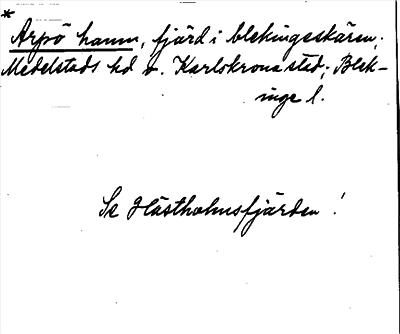 *
Arpö hamn, fjärd i blekingeskären;
Medelstads hd o. Karlskrona stad; Blek-
inge l.
Se Hästholmsfjärden!